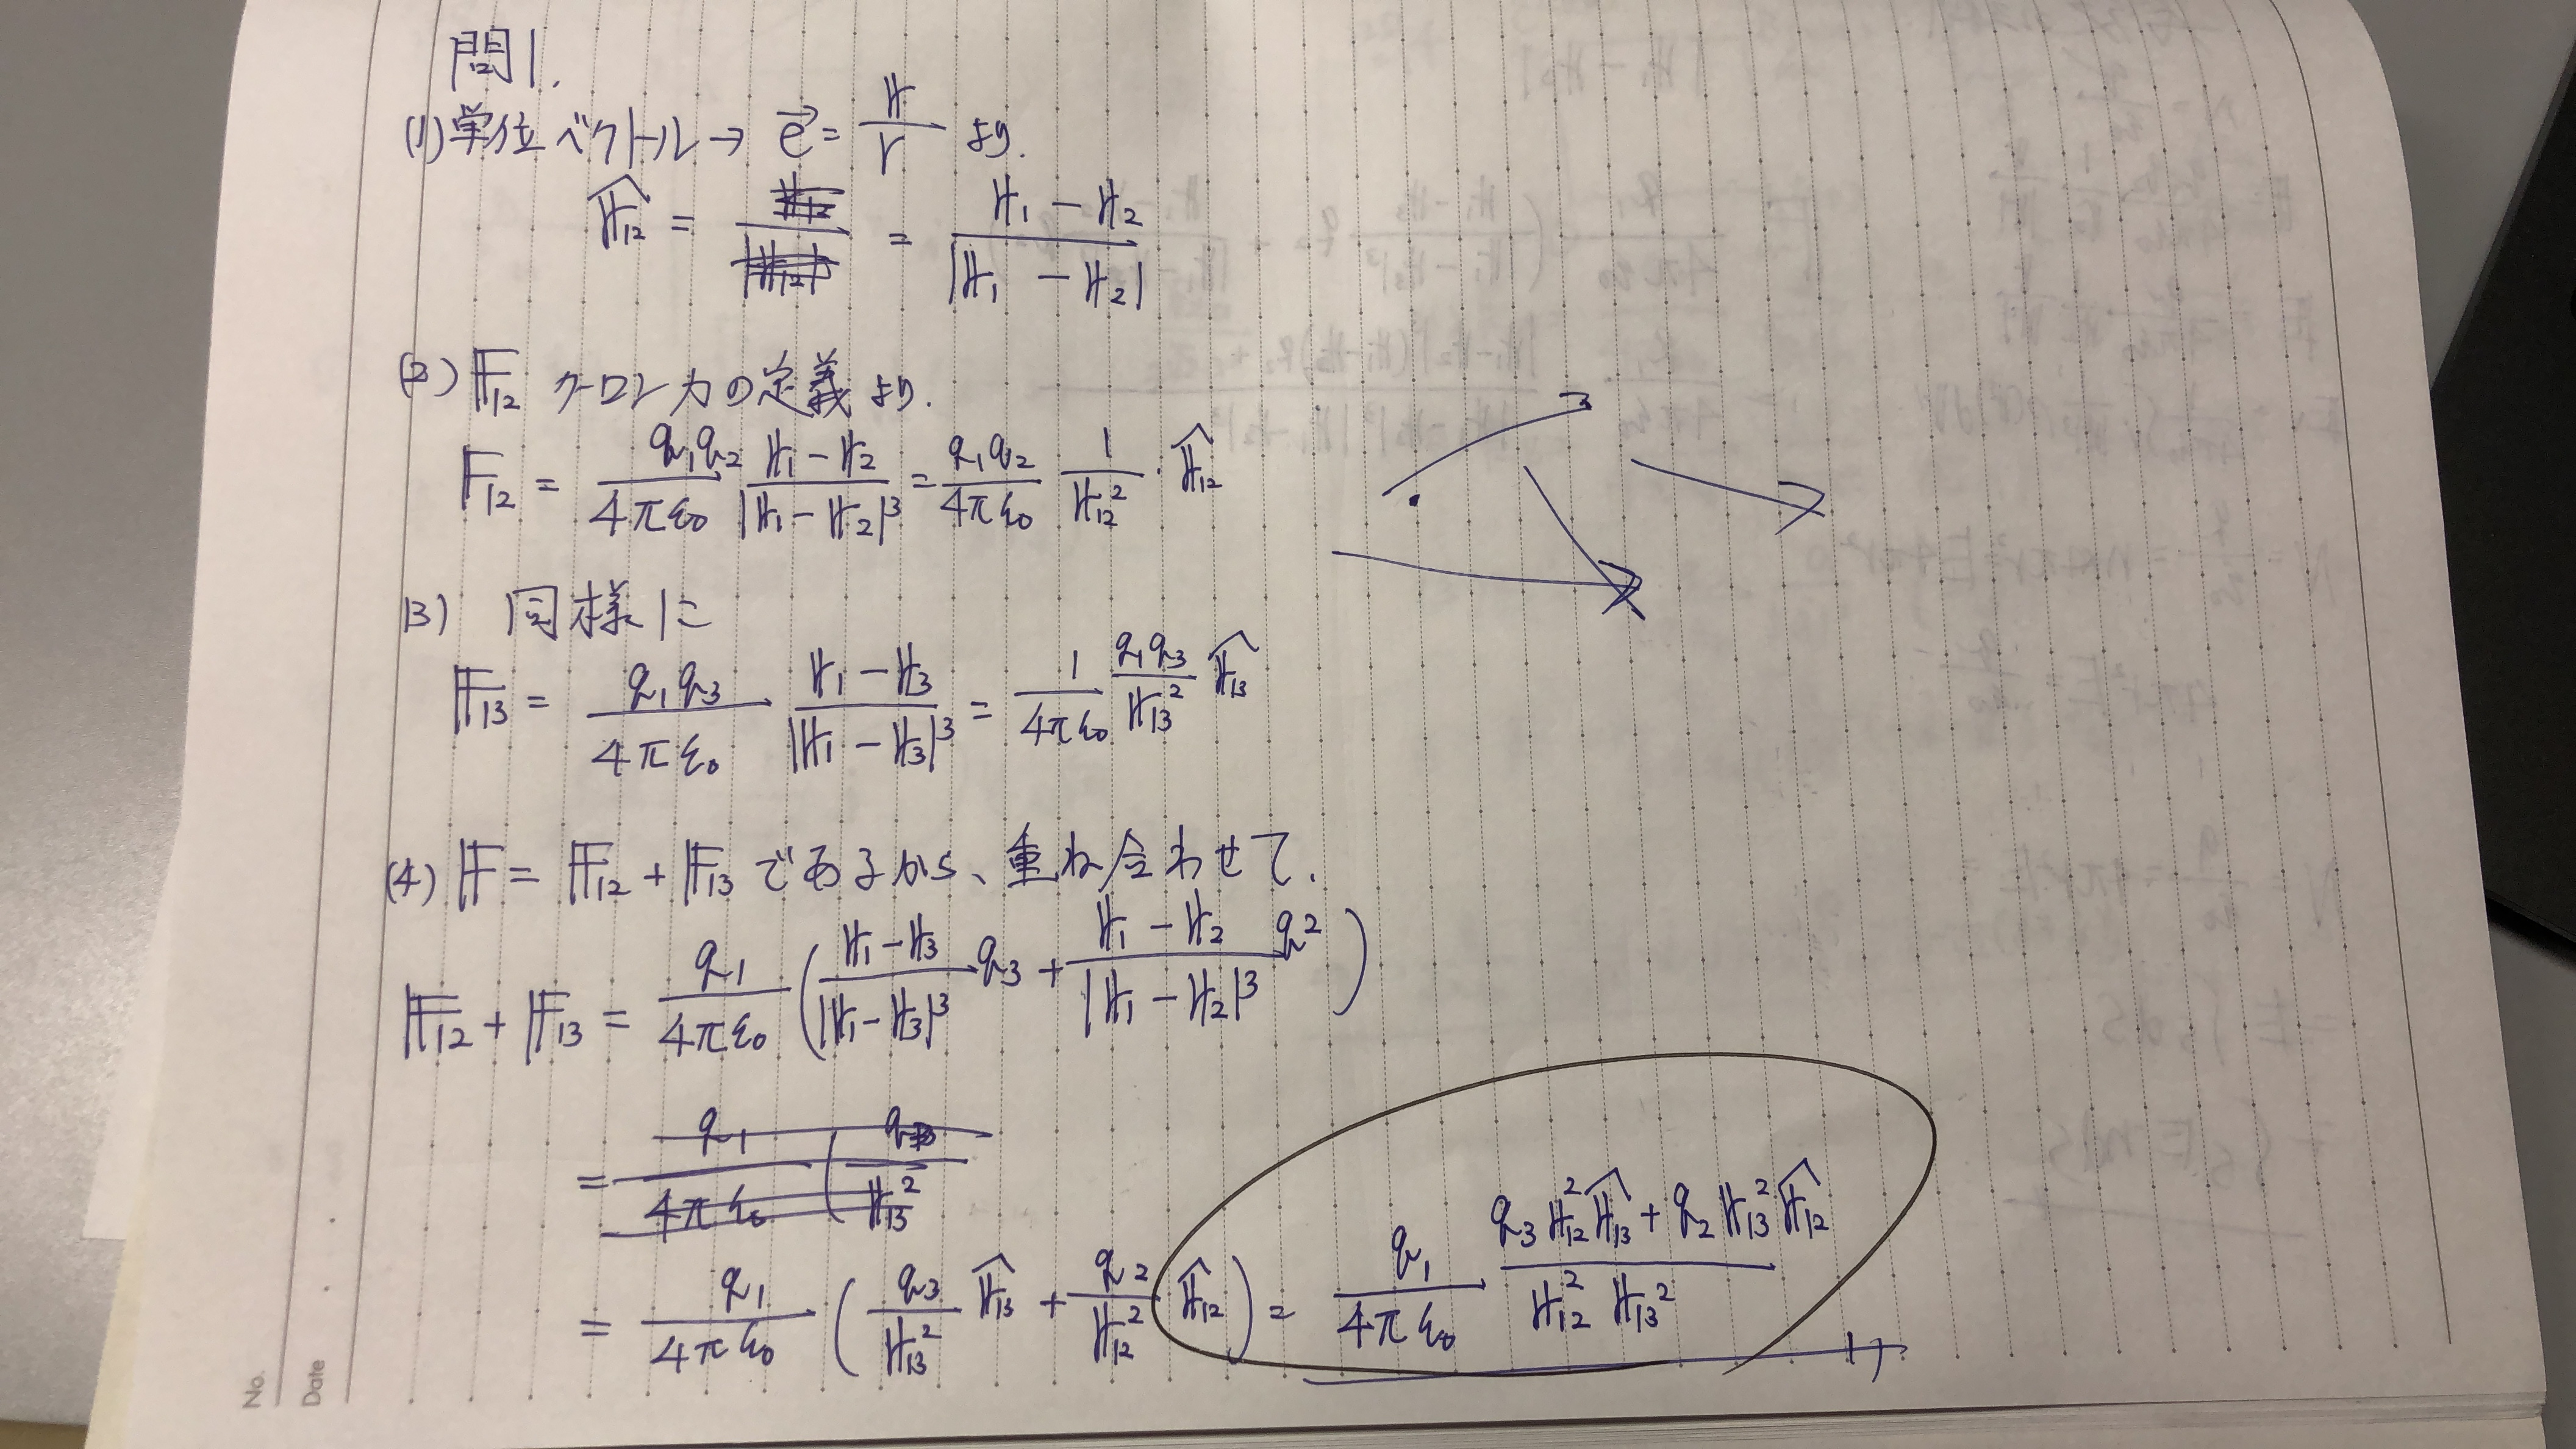 問1.
(1) 単位ベクトル → \vec{e} = \frac{𝕣}{r} より.
\hat{𝕣}_{12} = = \frac{𝕣_1 - 𝕣_2}{|𝕣_1 - 𝕣_2|}
(2) 𝔽_{12} クーロン力の定義より.
𝔽_{12} = \frac{q_1 q_2}{4πε_0} \frac{𝕣_1 - 𝕣_2}{|𝕣_1 - 𝕣_2|^3} = \frac{q_1 q_2}{4πε_0} \frac{1}{𝕣_{12}^2} · \hat{𝕣}_{12}
(3) 同様に
𝔽_{13} = \frac{q_1 q_3}{4πε_0} \frac{𝕣_1 - 𝕣_3}{|𝕣_1 - 𝕣_3|^3} = \frac{1}{4πε_0} \frac{q_1 q_3}{𝕣_{13}^2} \hat{𝕣}_{13}
(4) 𝔽 = 𝔽_{12} + 𝔽_{13} であるから、重ね合わせて.
𝔽_{12} + 𝔽_{13} = \frac{q_1}{4πε_0} ( \frac{𝕣_1 - 𝕣_3}{|𝕣_1 - 𝕣_3|^3} q_3 + \frac{𝕣_1 - 𝕣_2}{|𝕣_1 - 𝕣_2|^3} q^2 )
= \frac{q_1}{4πε_0} ( \frac{q_3}{𝕣_{13}^2} \hat{𝕣}_{13} + \frac{q_2}{𝕣_{12}^2} \hat{𝕣}_{12} ) = \frac{q_1}{4πε_0} \frac{q_3 𝕣_{12}^2 \hat{𝕣}_{13} + q_2 𝕣_{13}^2 \hat{𝕣}_{12}}{𝕣_{12}^2 𝕣_{13}^2}
No.
Date . .